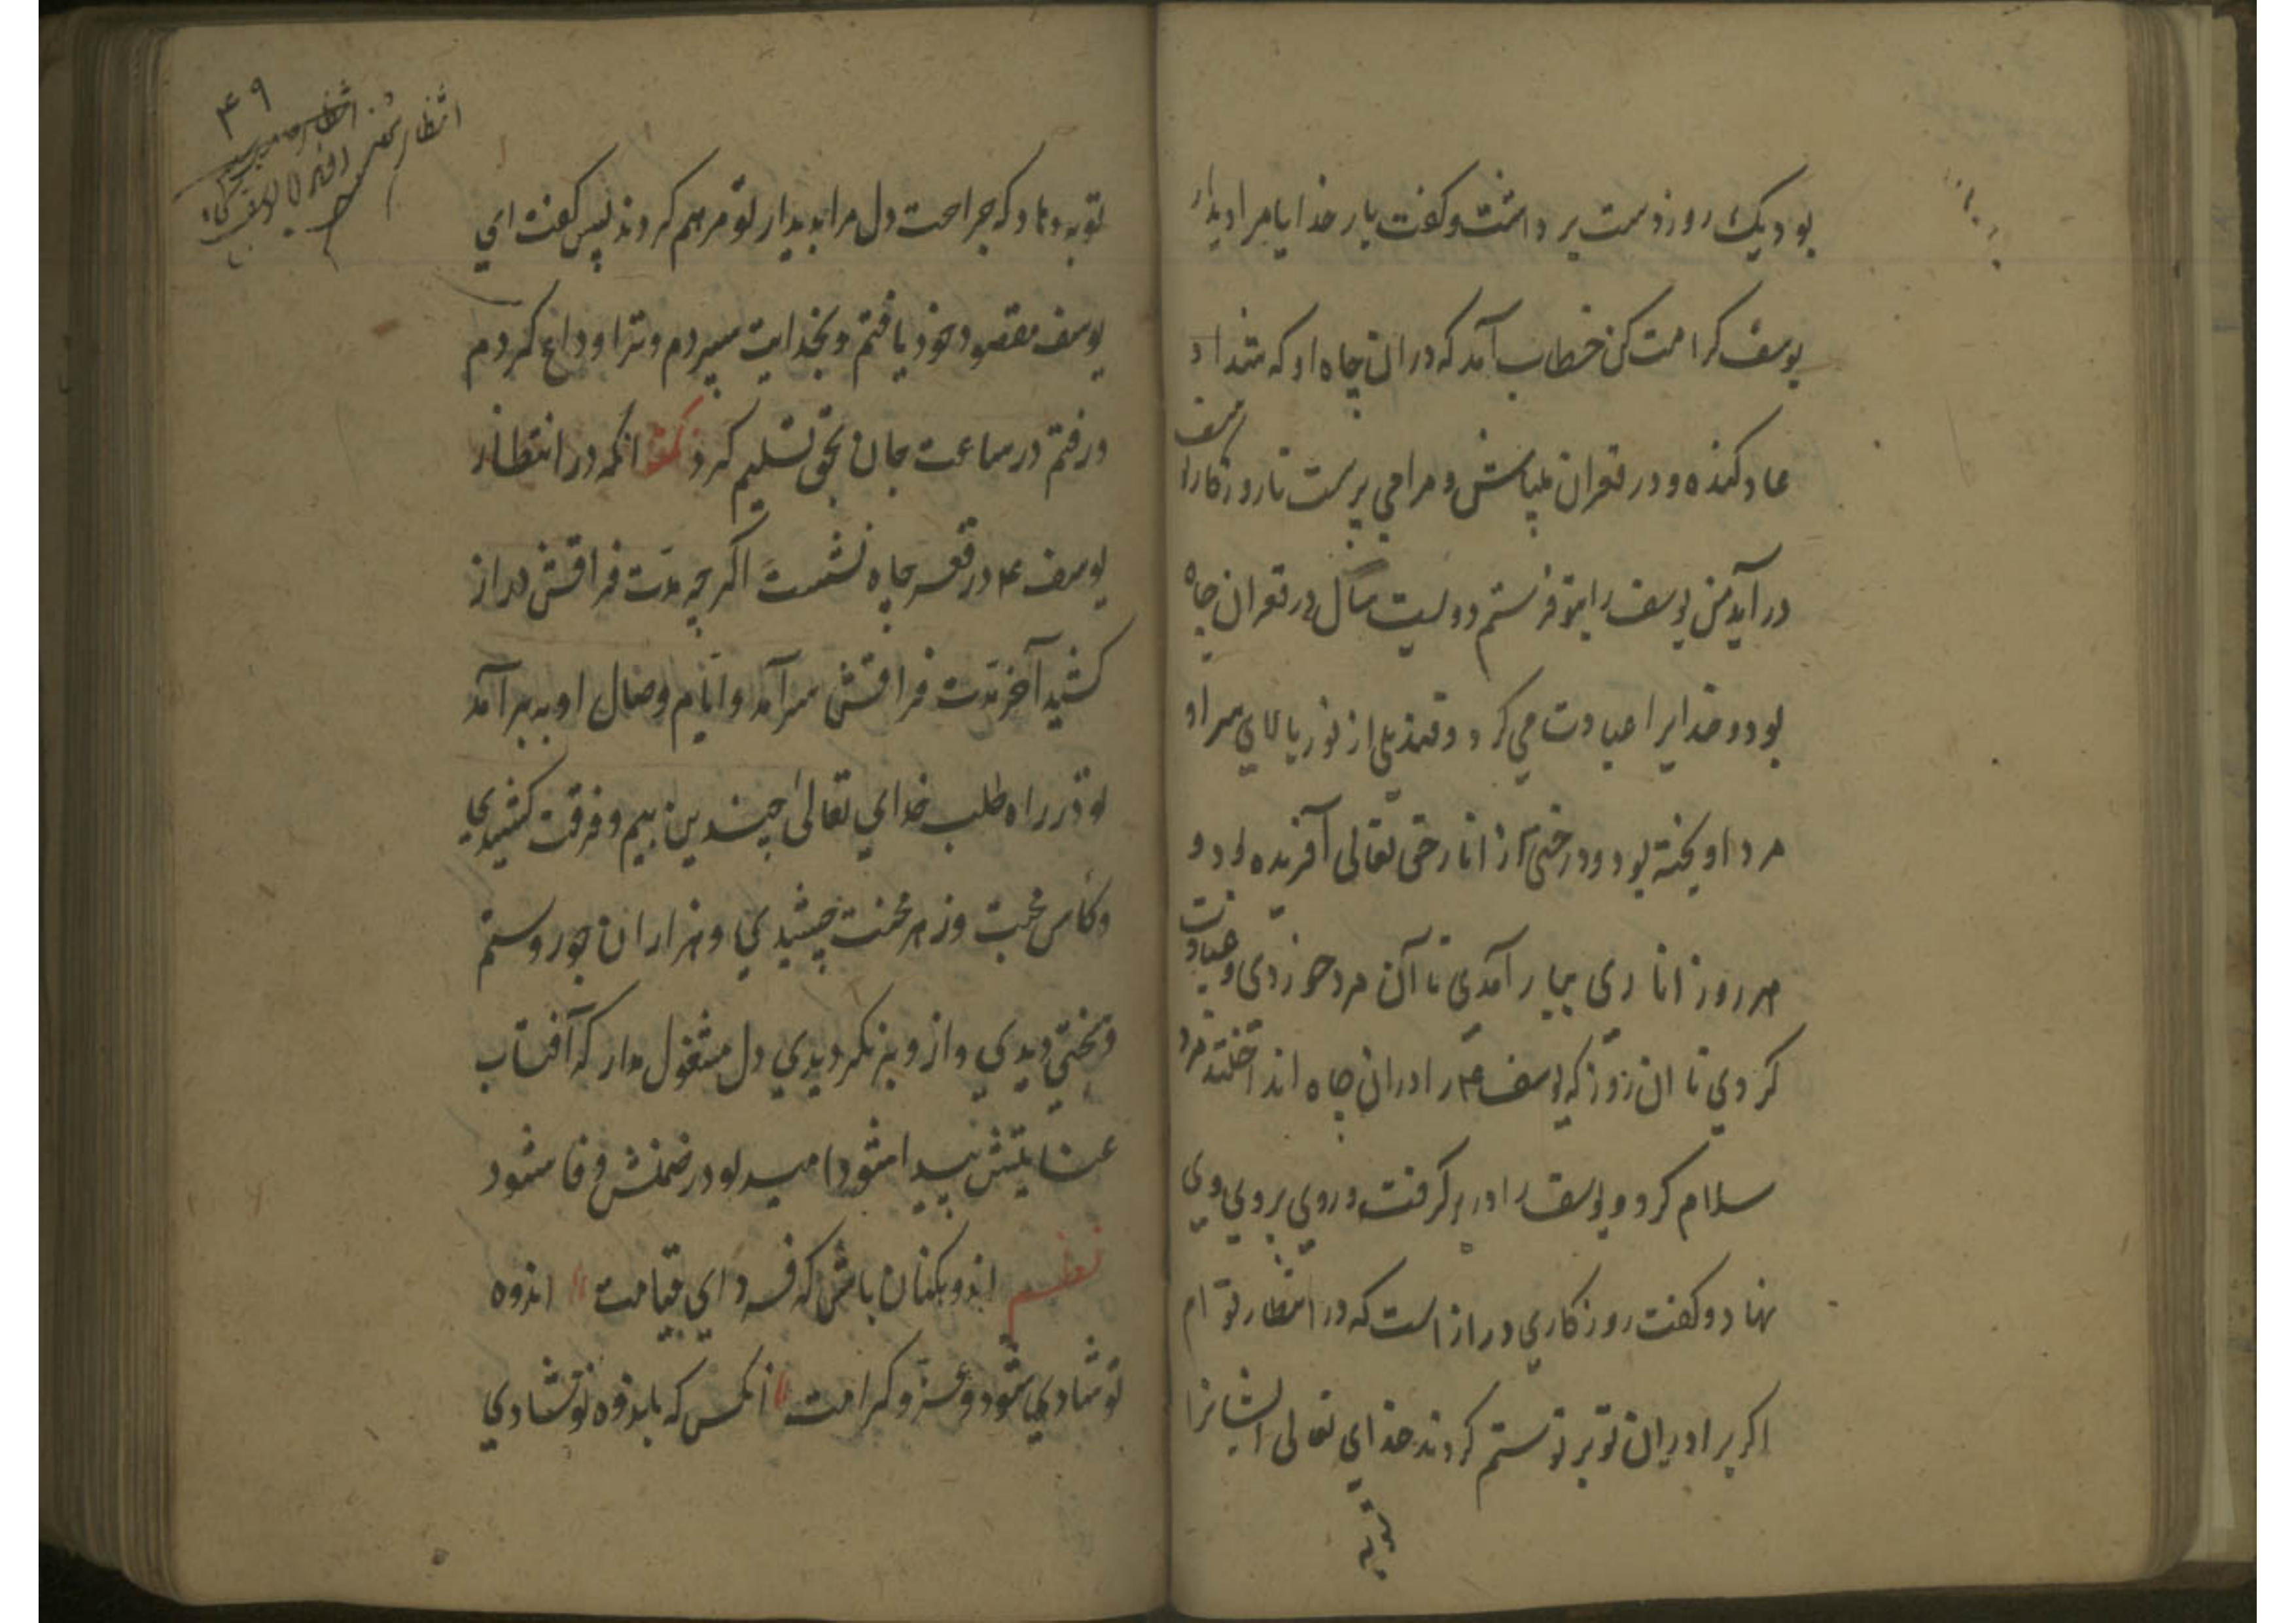 بود یک روز دست برداشت و گفت بار خدایا مرا دیدار
یوسف کرامت کن خطاب آمد که در ان چاه او که شداد
عاد کنده و در قعران میباش و مرا می پرست تا روزگار یوسف
در آید من یوسف را بتو فرستم دویست سال در قعران چاه
بود و خدایرا عبادت می کرد و قندیلی از نور بالای سر او
مرد اویخته بود و درختی از انار حق تعالی آفریده بود و
هر روز اناری ببار آمدی تا آن مرد خوردی و عبادت
کردی تا ان روز که یوسف ع م را در ان چاه انداختند مرد
سلام کرد و یوسف را در بر گرفت و روی بر وی وی
نهاد و گفت روزکاری دراز است که در انتظار تو ام
اکر برادران تو بر تو ستم کردند خدای تعالی ایشانرا
توبه
۴۹
انتظار
توبه دهاد که جراحت دل مرا بدیدار تو مرهم کردند پس گفت ای
یوسف مقصود خود یافتم و بخدایت سپردم و ترا وداع کردم
و رفتم در ساعت جان بحق تسلیم کرد نکته انکه در انتظار
یوسف ع م در قعر چاه نشست اکر چه مدت فراقش دراز
کشید آخر مدت فراقش سر آمد و ایام وصال او به بر آمد
تو در راه طلب خدای تعالی چندین بیم و فرقت کشیدی
و کأس محبت و زهر محنت چشیدی و هزاران جور و ستم
و سختی دیدی و از و بر نکردیدی دل مشغول مدار که آفتاب
عنایتش پیدا شود امید تو در ضمنش وفا شود
نظم اندوهکنان باش که فردای قیامت اندوه
تو شادی شود و عز و کرامت انکس که باندوه تو شادی